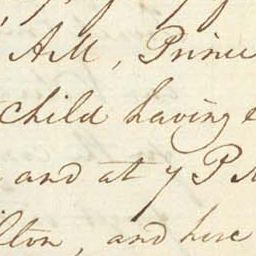 AM, Prince
child having
and at 7 P M
lton, and here